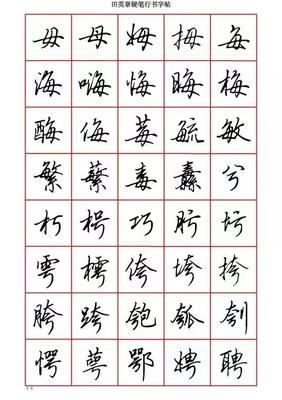 田英章硬笔行书字帖
毋 母 姆 拇 每
海 嗨 悔 晦 梅
酶 侮 莓 毓 敏
繁 蘩 毒 纛 兮
朽 枵 巧 肟 圬
雩 樗 侉 垮 挎
胯 跨 匏 瓠 刳
愕 萼 鄂 娉 聘